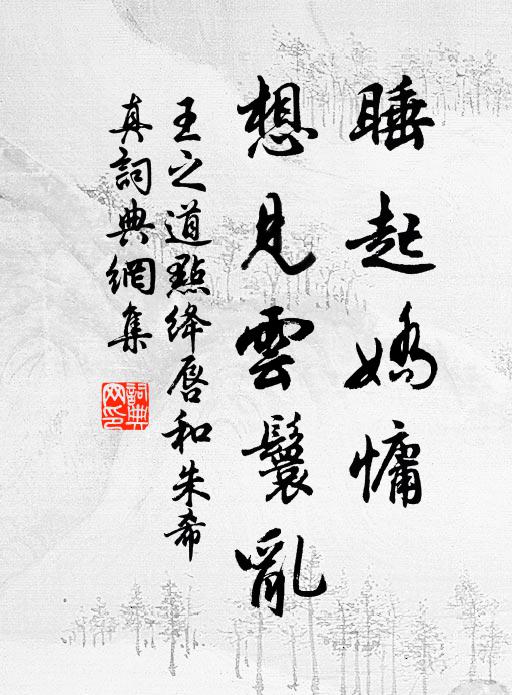 睡起嬌慵
想見雲鬟亂
王之道點絳唇和朱希
真詞典網集
詞典網印